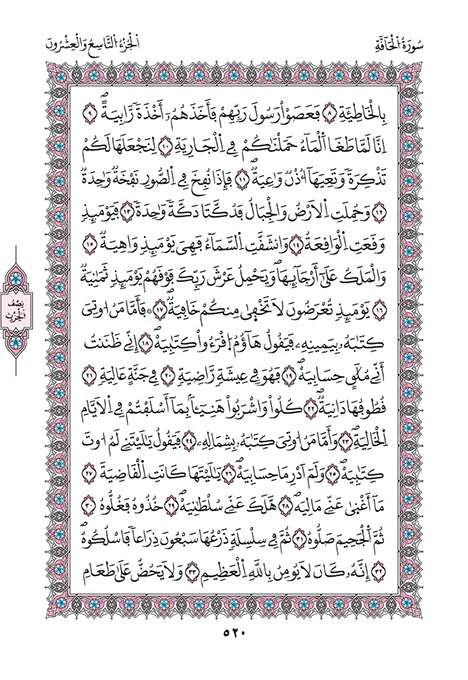 سُورَةُ الْحَاقَّةِ
الْجُزْءُ التَّاسِعُ وَالْعِشْرُونَ
بِالْخَاطِئَةِ ٨ فَعَصَوْا رَسُولَ رَبِّهِمْ فَأَخَذَهُمْ أَخْذَةً رَّابِيَةً ٩
إِنَّا لَمَّا طَغَا الْمَاءُ حَمَلْنَاكُمْ فِي الْجَارِيَةِ ١٠ لِنَجْعَلَهَا لَكُمْ
تَذْكِرَةً وَتَعِيَهَا أُذُنٌ وَاعِيَةٌ ١١ فَإِذَا نُفِخَ فِي الصُّورِ نَفْخَةٌ وَاحِدَةٌ
١٢ وَحُمِلَتِ الْأَرْضُ وَالْجِبَالُ فَدُكَّتَا دَكَّةً وَاحِدَةً ١٣ فَيَوْمَئِذٍ
وَقَعَتِ الْوَاقِعَةُ ١٤ وَانشَقَّتِ السَّمَاءُ فَهِيَ يَوْمَئِذٍ وَاهِيَةٌ ١٥
وَالْمَلَكُ عَلَىٰ أَرْجَائِهَا وَيَحْمِلُ عَرْشَ رَبِّكَ فَوْقَهُمْ يَوْمَئِذٍ ثَمَٰنِيَةٌ
١٦ يَوْمَئِذٍ تُعْرَضُونَ لَا تَخْفَىٰ مِنكُمْ خَافِيَةٌ ١٧ فَأَمَّا مَنْ أُوتِيَ
كِتَٰبَهُ بِيَمِينِهِ فَيَقُولُ هَاؤُمُ اقْرَءُوا كِتَٰبِيَهْ ١٨ إِنِّي ظَنَنتُ
أَنِّي مُلَٰقٍ حِسَابِيَهْ ١٩ فَهُوَ فِي عِيشَةٍ رَّاضِيَةٍ ٢٠ فِي جَنَّةٍ عَالِيَةٍ ٢١
قُطُوفُهَا دَانِيَةٌ ٢٢ كُلُوا وَاشْرَبُوا هَنِيئًا بِمَا أَسْلَفْتُمْ فِي الْأَيَّامِ
الْخَالِيَةِ ٢٣ وَأَمَّا مَنْ أُوتِيَ كِتَٰبَهُ بِشِمَالِهِ ٢٤ فَيَقُولُ يَٰلَيْتَنِي لَمْ أُوتَ
كِتَٰبِيَهْ ٢٥ وَلَمْ أَدْرِ مَا حِسَابِيَهْ ٢٦ يَٰلَيْتَهَا كَانَتِ الْقَاضِيَةَ ٢٧
مَا أَغْنَىٰ عَنِّي مَالِيَهْ ٢٨ هَلَكَ عَنِّي سُلْطَٰنِيَهْ ٢٩ خُذُوهُ فَغُلُّوهُ ٣٠
ثُمَّ الْجَحِيمَ صَلُّوهُ ٣١ ثُمَّ فِي سِلْسِلَةٍ ذَرْعُهَا سَبْعُونَ ذِرَاعًا فَاسْلُكُوهُ
٣٢ إِنَّهُ كَانَ لَا يُومِنُ بِاللَّهِ الْعَظِيمِ ٣٣ وَلَا يَحُضُّ عَلَىٰ طَعَامِ
نِصْفُ
الْحِزْبِ
٥٢٠